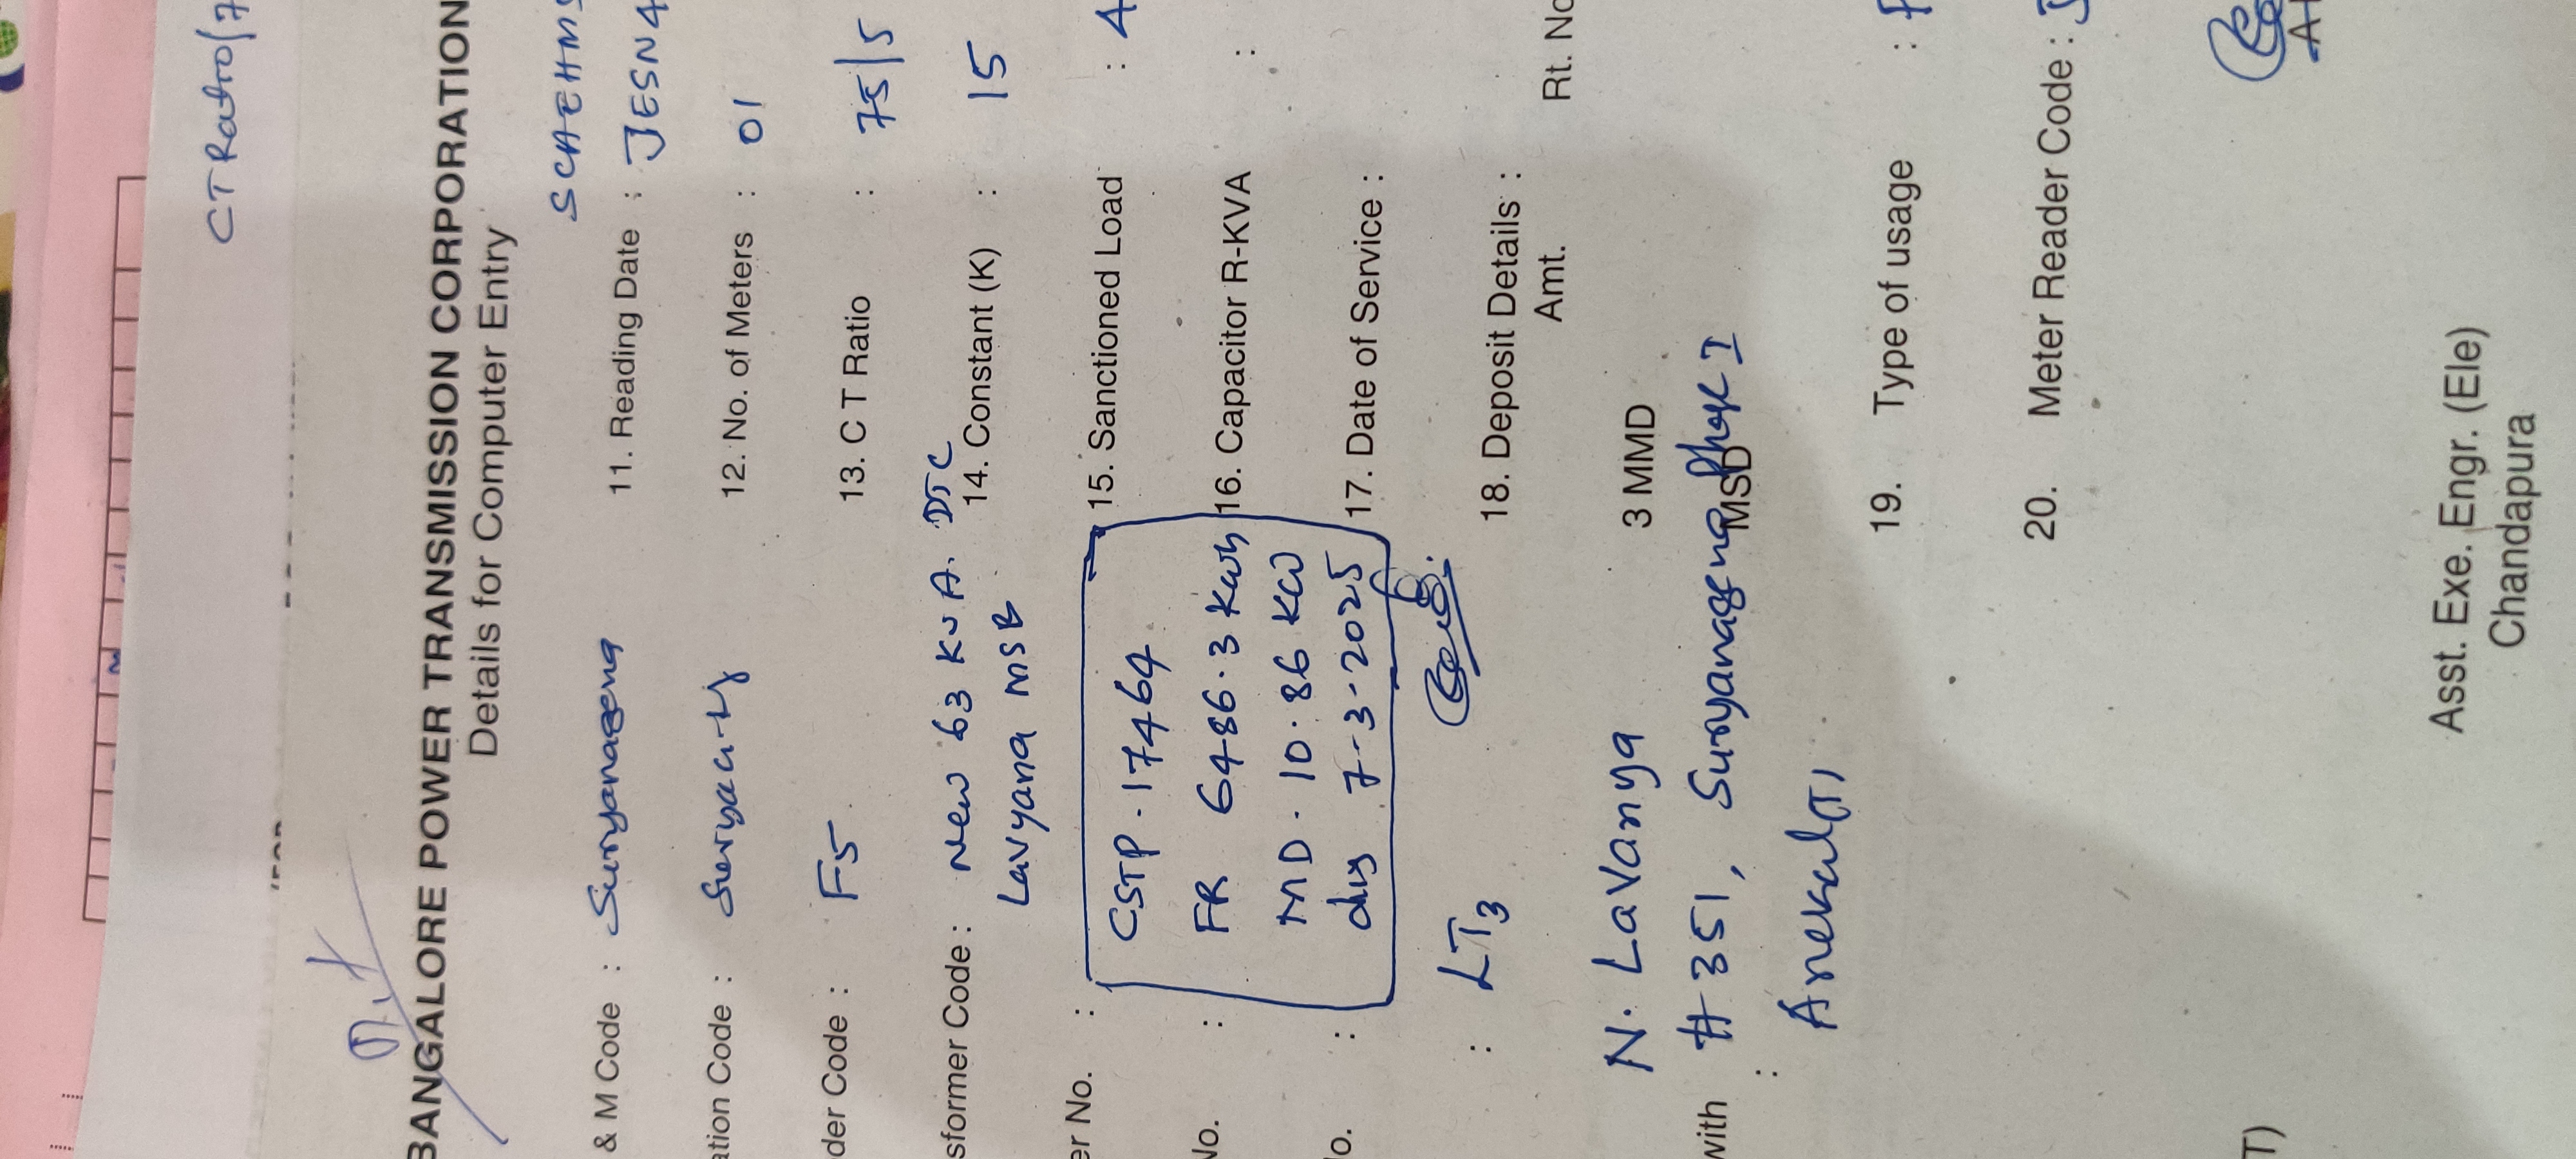 CT Ratio/7
BANGALORE POWER TRANSMISSION CORPORATION
Details for Computer Entry
SCHEHMS
& M Code : Suryanagena 11. Reading Date : JESN4
ation Code : 12. No. of Meters : 01
der Code : F5 13. C T Ratio : 75/5
sformer Code : New 63 KVA. DTC
Lavyana MSB 14. Constant (K) : 15
er No. : CSTP. 17464 15. Sanctioned Load : 4
No. : FR 6486.3 Kwh 16. Capacitor R-KVA :
o. : MD. 10.86 KW
7-3-2025 17. Date of Service :
: LT3 18. Deposit Details :
Amt. Rt. No
N. Lavanya 3 MMD
with : #351, Suryanagena Phase I MSD
Anekal(T)
19. Type of usage :
20. Meter Reader Code : J
Asst. Exe. Engr. (Ele)
Chandapura
T)